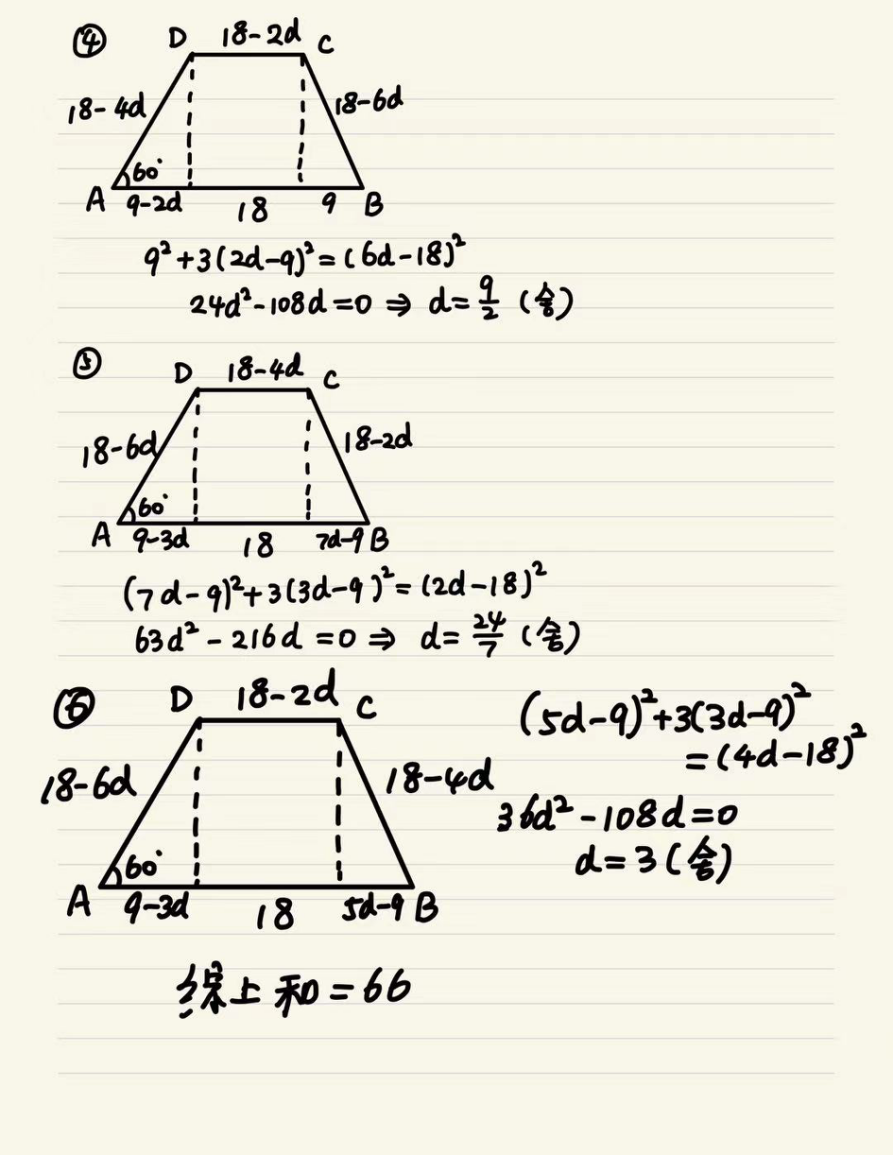 ④
D 18-2d C
18-4d 18-6d
60°
A 9-2d 18 9 B
9²+3(2d-9)²=(6d-18)²
24d²-108d=0 ⇒ d=9/2 (舍)
⑤
D 18-4d C
18-6d 18-2d
60°
A 9-3d 18 7d-9 B
(7d-9)²+3(3d-9)²=(2d-18)²
63d²-216d=0 ⇒ d=24/7 (舍)
⑥
D 18-2d C
18-6d 18-4d
60°
A 9-3d 18 5d-9 B
(5d-9)²+3(3d-9)²
=(4d-18)²
36d²-108d=0
d=3(舍)
综上和=66